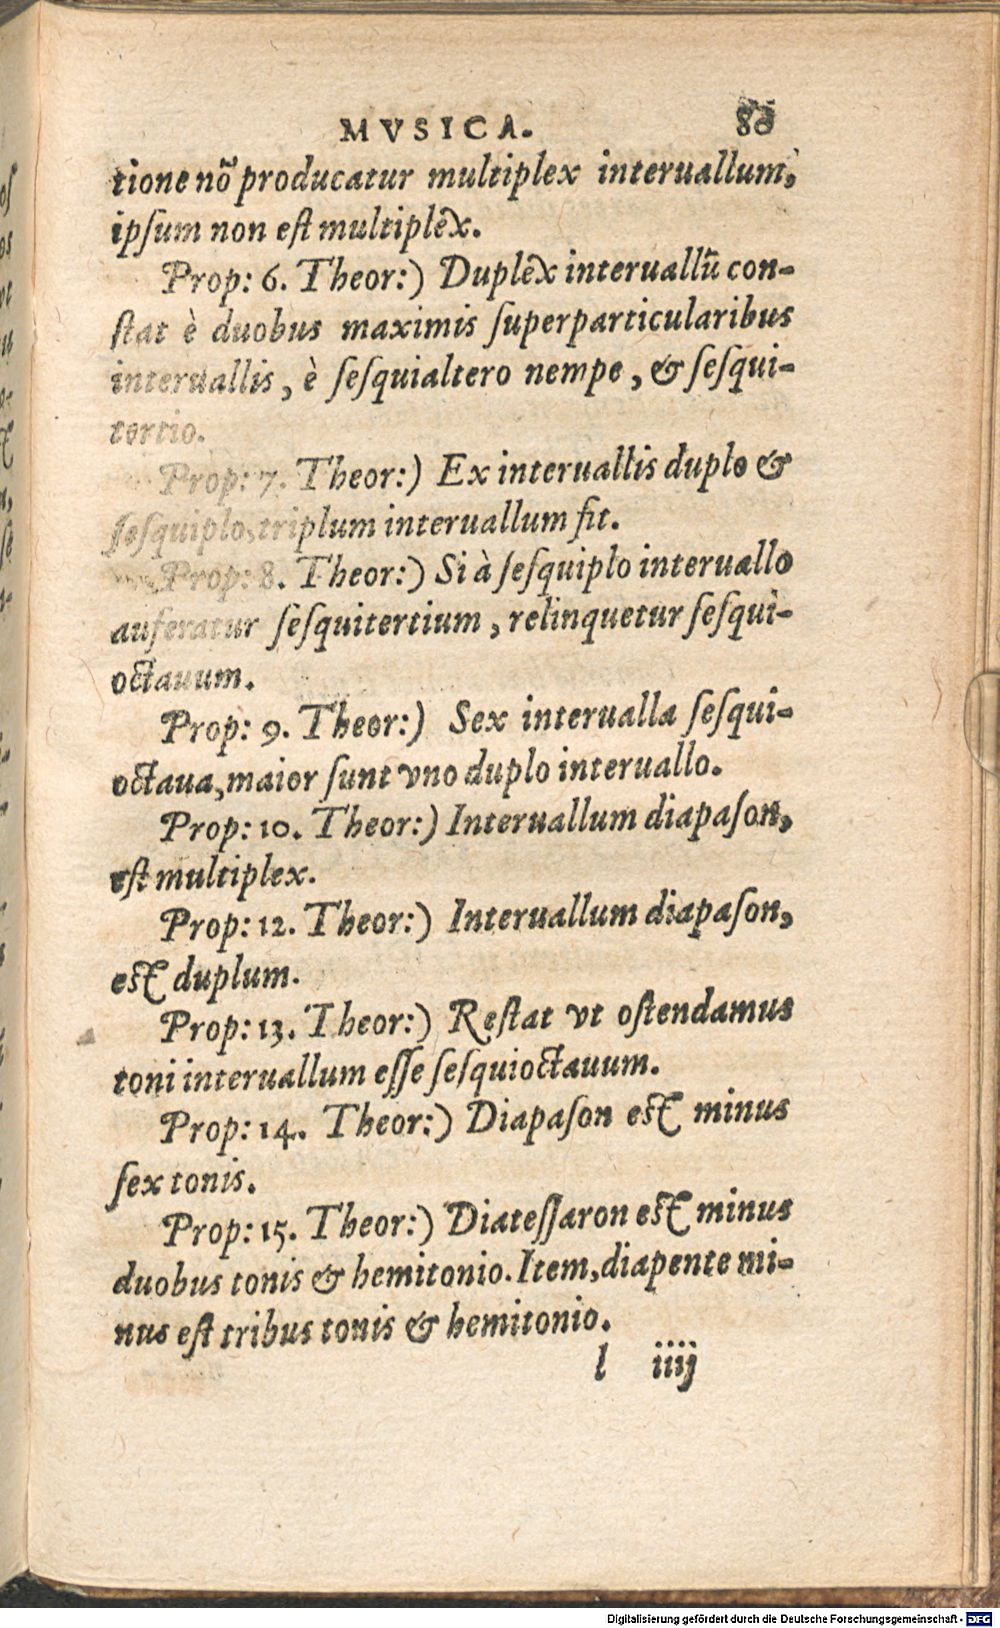 MVSICA. 86
tione nõ producatur multiplex interuallum,
ipsum non est multiplex.
Prop: 6. Theor:) Duplex interuallũ con-
stat è duobus maximis superparticularibus
interuallis, è sesquialtero nempe, & sesqui-
tertio.
Prop: 7. Theor:) Ex interuallis duplo &
sesquiplo, triplum interuallum fit.
Prop: 8. Theor:) Si à sesquiplo interuallo
auferatur sesquitertium, relinquetur sesqui-
octauum.
Prop: 9. Theor:) Sex interualla sesqui-
octaua, maior sunt vno duplo interuallo.
Prop: 10. Theor:) Interuallum diapason,
est multiplex.
Prop: 12. Theor:) Interuallum diapason,
est duplum.
Prop: 13. Theor:) Restat vt ostendamus
toni interuallum esse sesquioctauum.
Prop: 14. Theor:) Diapason est minus
sex tonis.
Prop: 15. Theor:) Diatessaron est minus
duobus tonis & hemitonio. Item, diapente mi-
nus est tribus tonis & hemitonio.
l iiij
Digitalisierung gefördert durch die Deutsche Forschungsgemeinschaft - DFG